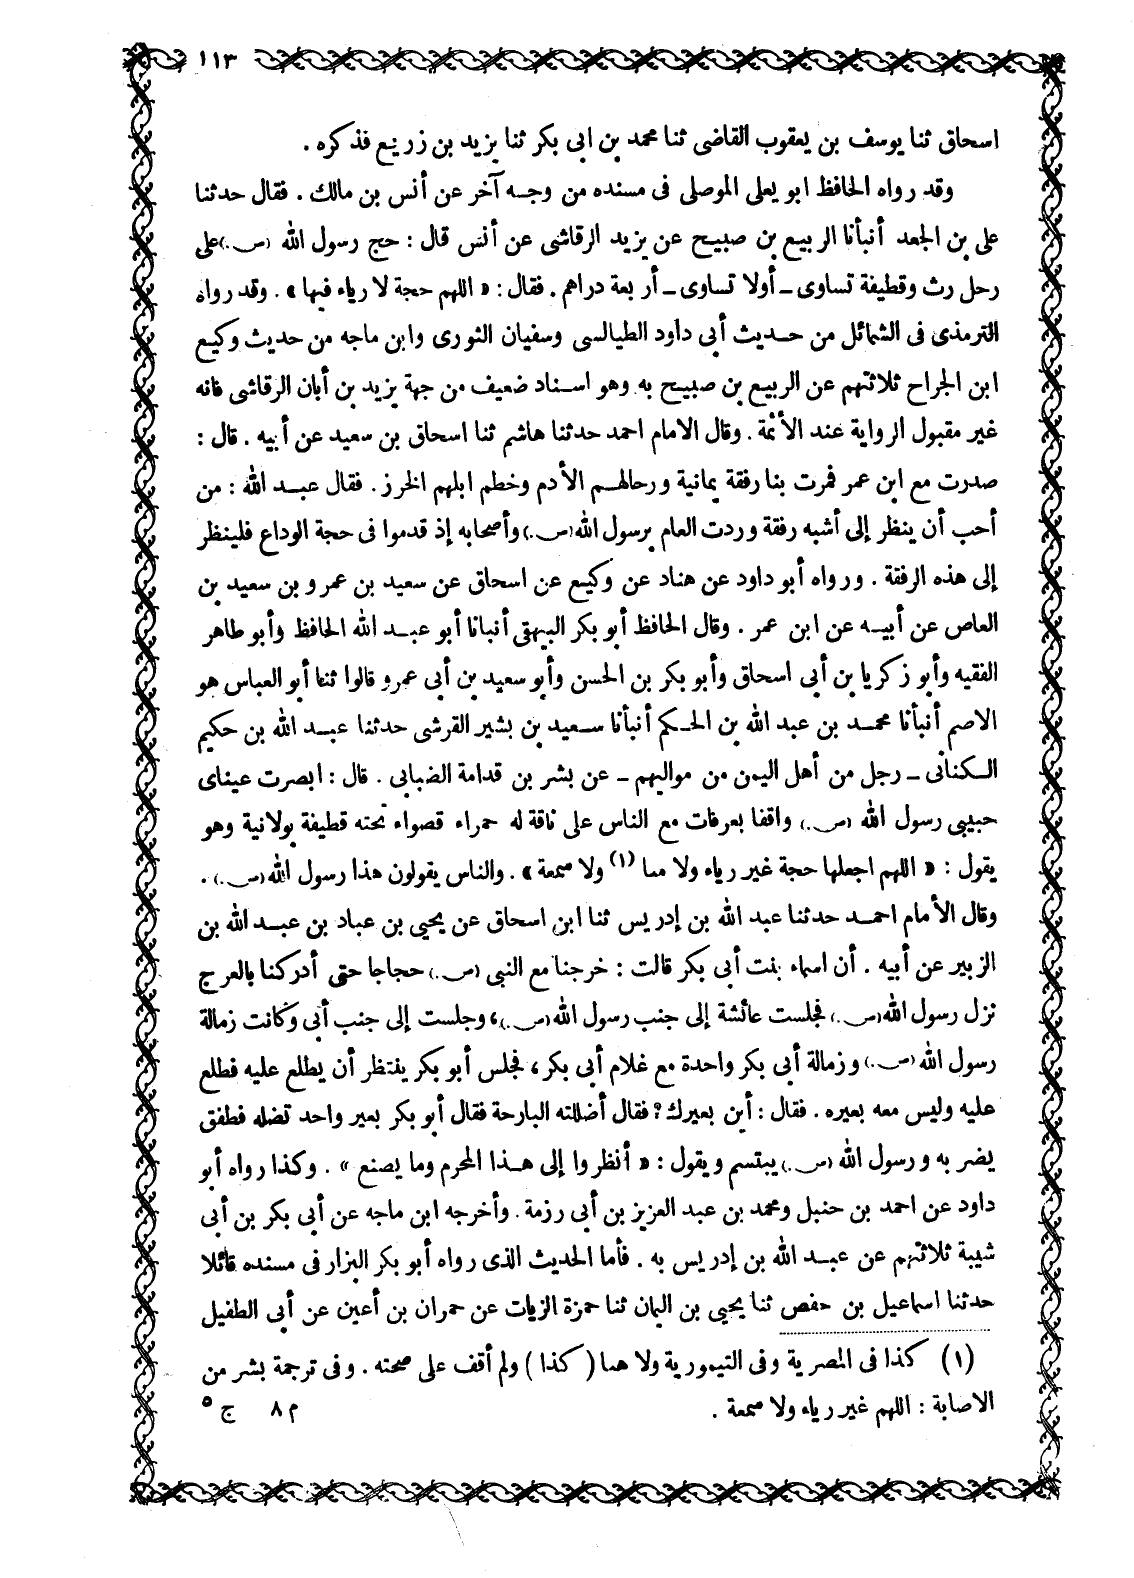 ١١٣
اسحاق ثنا يوسف بن يعقوب القاضى ثنا محمد بن ابى بكر ثنا يزيد بن زريع فذكره .
وقد رواه الحافظ ابو يعلى الموصلى فى مسنده من وجه آخر عن أنس بن مالك . فقال حدثنا
على بن الجعد أنبأنا الربيع بن صبيح عن يزيد الرقاشى عن أنس قال : حج رسول الله (س.) على
رحل رث وقطيفة تساوى ــ أولا تساوى ــ أربعة دراهم . فقال : « اللهم حجة لا رياء فيها » . وقد رواه
الترمذى فى الشمائل من حديث أبى داود الطيالسى وسفيان الثورى وابن ماجه من حديث وكيع
ابن الجراح ثلاثتهم عن الربيع بن صبيح به وهو اسناد ضعيف من جهة يزيد بن أبان الرقاشى فانه
غير مقبول الرواية عند الأئمة . وقال الامام احمد حدثنا هاشم ثنا اسحاق بن سعيد عن أبيه . قال :
صدرت مع ابن عمر فمرت بنا رفقة يمانية ورحالهم الأدم وخطم ابلهم الخرز . فقال عبد الله : من
أحب أن ينظر إلى أشبه رفقة وردت العام برسول الله (س.) وأصحابه إذ قدموا فى حجة الوداع فلينظر
إلى هذه الرفقة . ورواه أبو داود عن هناد عن وكيع عن اسحاق عن سعيد بن عمرو بن سعيد بن
العاص عن أبيه عن ابن عمر . وقال الحافظ أبو بكر البيهقى أنبانا أبو عبد الله الحافظ وأبو طاهر
الفقيه وأبو زكريا بن أبى اسحاق وأبو بكر بن الحسن وأبو سعيد بن أبى عمرو قالوا ثنا أبو العباس هو
الاصم أنبأنا محمد بن عبد الله بن الحكم أنبأنا سعيد بن بشير القرشى حدثنا عبد الله بن حكيم
الكنانى ــ رجل من أهل اليمن من مواليهم ــ عن بشر بن قدامة الضبابى . قال : ابصرت عيناى
حبيبى رسول الله (س.) واقفا بعرفات مع الناس على ناقة له حمراء قصواء تحته قطيفة بولانية وهو
يقول : « اللهم اجعلها حجة غير رياء ولا مىا (١) ولا سمعة » . والناس يقولون هذا رسول الله (س.) .
وقال الأمام احمد حدثنا عبد الله بن إدريس ثنا ابن اسحاق عن يحيى بن عباد بن عبد الله بن
الزبير عن أبيه . أن اسماء بنت أبى بكر قالت : خرجنا مع النبى (س.) حجاجا حتى أدركنا بالعرج
نزل رسول الله (س.) فجلست عائشة إلى جنب رسول الله (س.) ، وجلست إلى جنب أبى وكانت زمالة
رسول الله (س.) وزمالة أبى بكر واحدة مع غلام أبى بكر ، فجلس أبو بكر ينتظر أن يطلع عليه فطلع
عليه وليس معه بعيره . فقال : أين بعيرك ؟ فقال أضللته البارحة فقال أبو بكر بعير واحد تضله فطفق
يضربه ورسول الله (س.) يبتسم ويقول : « أنظروا إلى هذا المحرم وما يصنع » . وكذا رواه أبو
داود عن احمد بن حنبل ومحمد بن عبد العزيز بن أبى رزمة . وأخرجه ابن ماجه عن أبى بكر بن أبى
شيبة ثلاثتهم عن عبد الله بن إدريس به . فأما الحديث الذى رواه أبو بكر البزار فى مسنده قائلا
حدثنا اسماعيل بن حفص ثنا يحيى بن اليمان ثنا حمزة الزيات عن حمران بن أعين عن أبى الطفيل
(١) كذا فى المصرية وفى التيمورية ولا هىا ( كذا ) ولم أقف على صحته . وفى ترجمة بشر من
الاصابة : اللهم غير رياء ولا سمعة .
م ٨ ج ٥